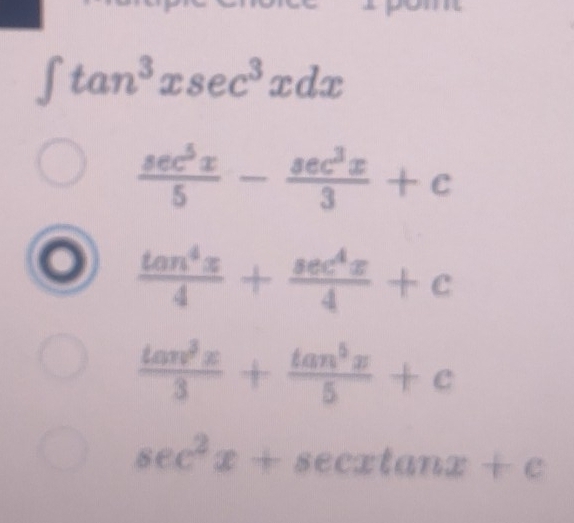 Multiple Choice 1 point
∫ tan³ xsec³ xdx
sec⁵ x/5 − sec³ x/3 + c
tan⁴ x/4 + sec⁴ x/4 + c
tan³ x/3 + tan⁵ x/5 + c
sec² x + secxtanx + c